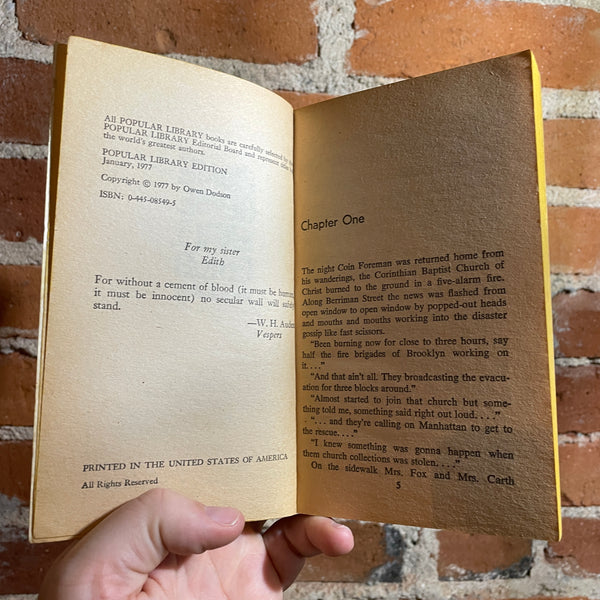 All POPULAR LIBRARY books are carefully selected by the
POPULAR LIBRARY Editorial Board and represent titles by
the world's greatest authors.
POPULAR LIBRARY EDITION
January, 1977
Copyright © 1977 by Owen Dodson
ISBN: 0-445-08549-5
For my sister
Edith
For without a cement of blood (it must be human,
it must be innocent) no secular wall will safely
stand.
—W. H. Auden
Vespers
PRINTED IN THE UNITED STATES OF AMERICA
All Rights Reserved
Chapter One
The night Coin Foreman was returned home from
his wanderings, the Corinthian Baptist Church of
Christ burned to the ground in a five-alarm fire.
Along Berriman Street the news was flashed from
open window to open window by popped-out heads
and mouths and mouths working into the disaster
gossip like fast scissors.
"Been burning now for close to three hours, say
half the fire brigades of Brooklyn working on
it. . . ."
"And that ain't all. They broadcasting the evacu-
ation for three blocks around."
"Almost started to join that church but some-
thing told me, something said right out loud. . . ."
". . . and they're calling on Manhattan to get to
the rescue. . . ."
"I knew something was gonna happen when
them church collections was stolen. . . ."
On the sidewalk Mrs. Fox and Mrs. Carth
5